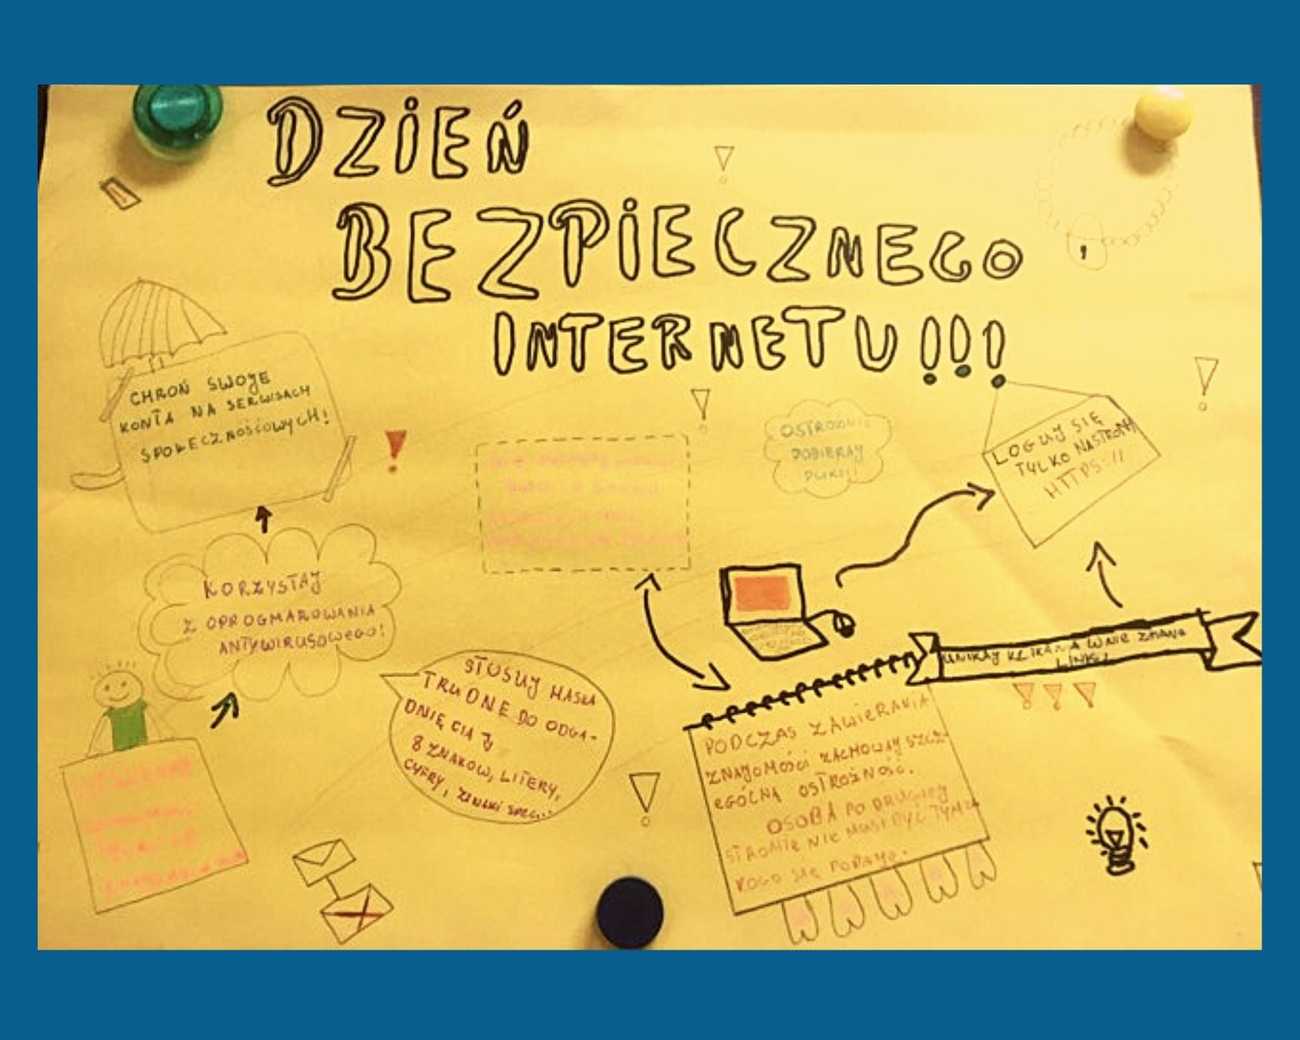 DZIEŃ
BEZPIECZNEGO
INTERNETU!!!
CHROŃ SWOJE
KONTA NA SERWISACH
SPOŁECZNOŚCIOWYCH!
OSTROŻNIE
POBIERAJ
PLIKI!
LOGUJ SIĘ
TYLKO NA STRONY
HTTPS://
KORZYSTAJ
Z OPROGRAMOWANIA
ANTYWIRUSOWEGO!
UNIKAJ KLIKANIA W NIE ZNANE
LINKI
STOSUJ HASŁA
TRUDNE DO ODGA-
DNIĘCIA
8 ZNAKÓW, LITERY,
CYFRY, ZNAKI SPEC...
PODCZAS ZAWIERANIA
ZNAJOMOŚCI ZACHOWAJ SZCZ-
EGÓLNĄ OSTROŻNOŚĆ.
OSOBA PO DRUGIEJ
STRONIE NIE MUSI BYĆ TYM ZA
KOGO SIĘ PODAJE.